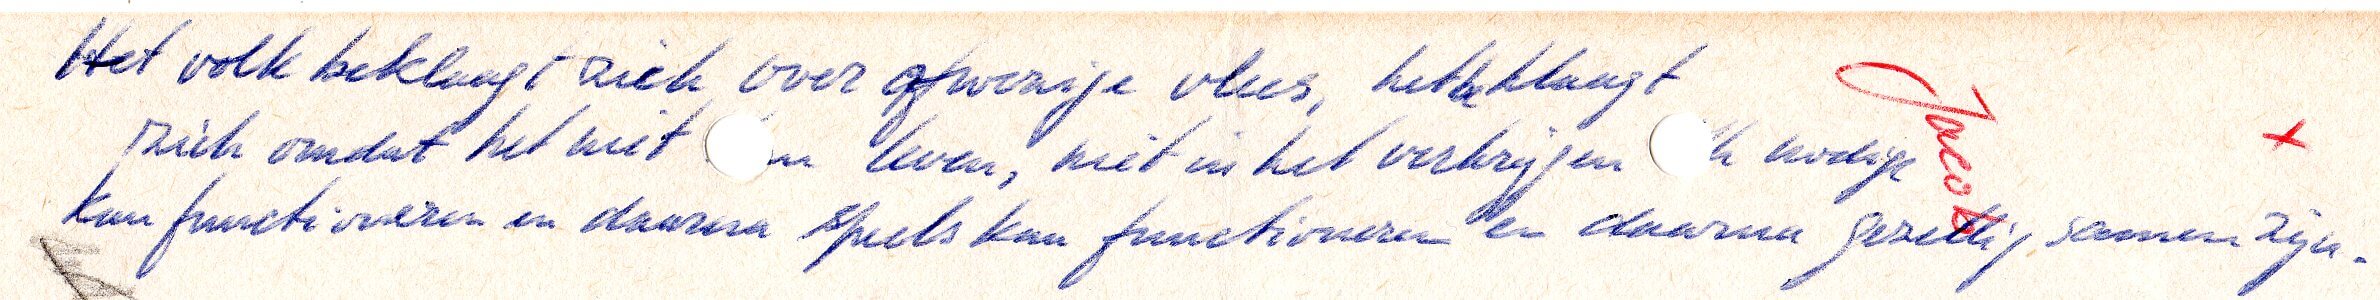 Het volk beklaagt zich over afwezige vlees, het beklaagt
zich omdat het niet leven, niet in het verkrijgen nodige
kan functioneren en daarna speels kan functioneren en daarna gezellig samen zijn.
Jacob